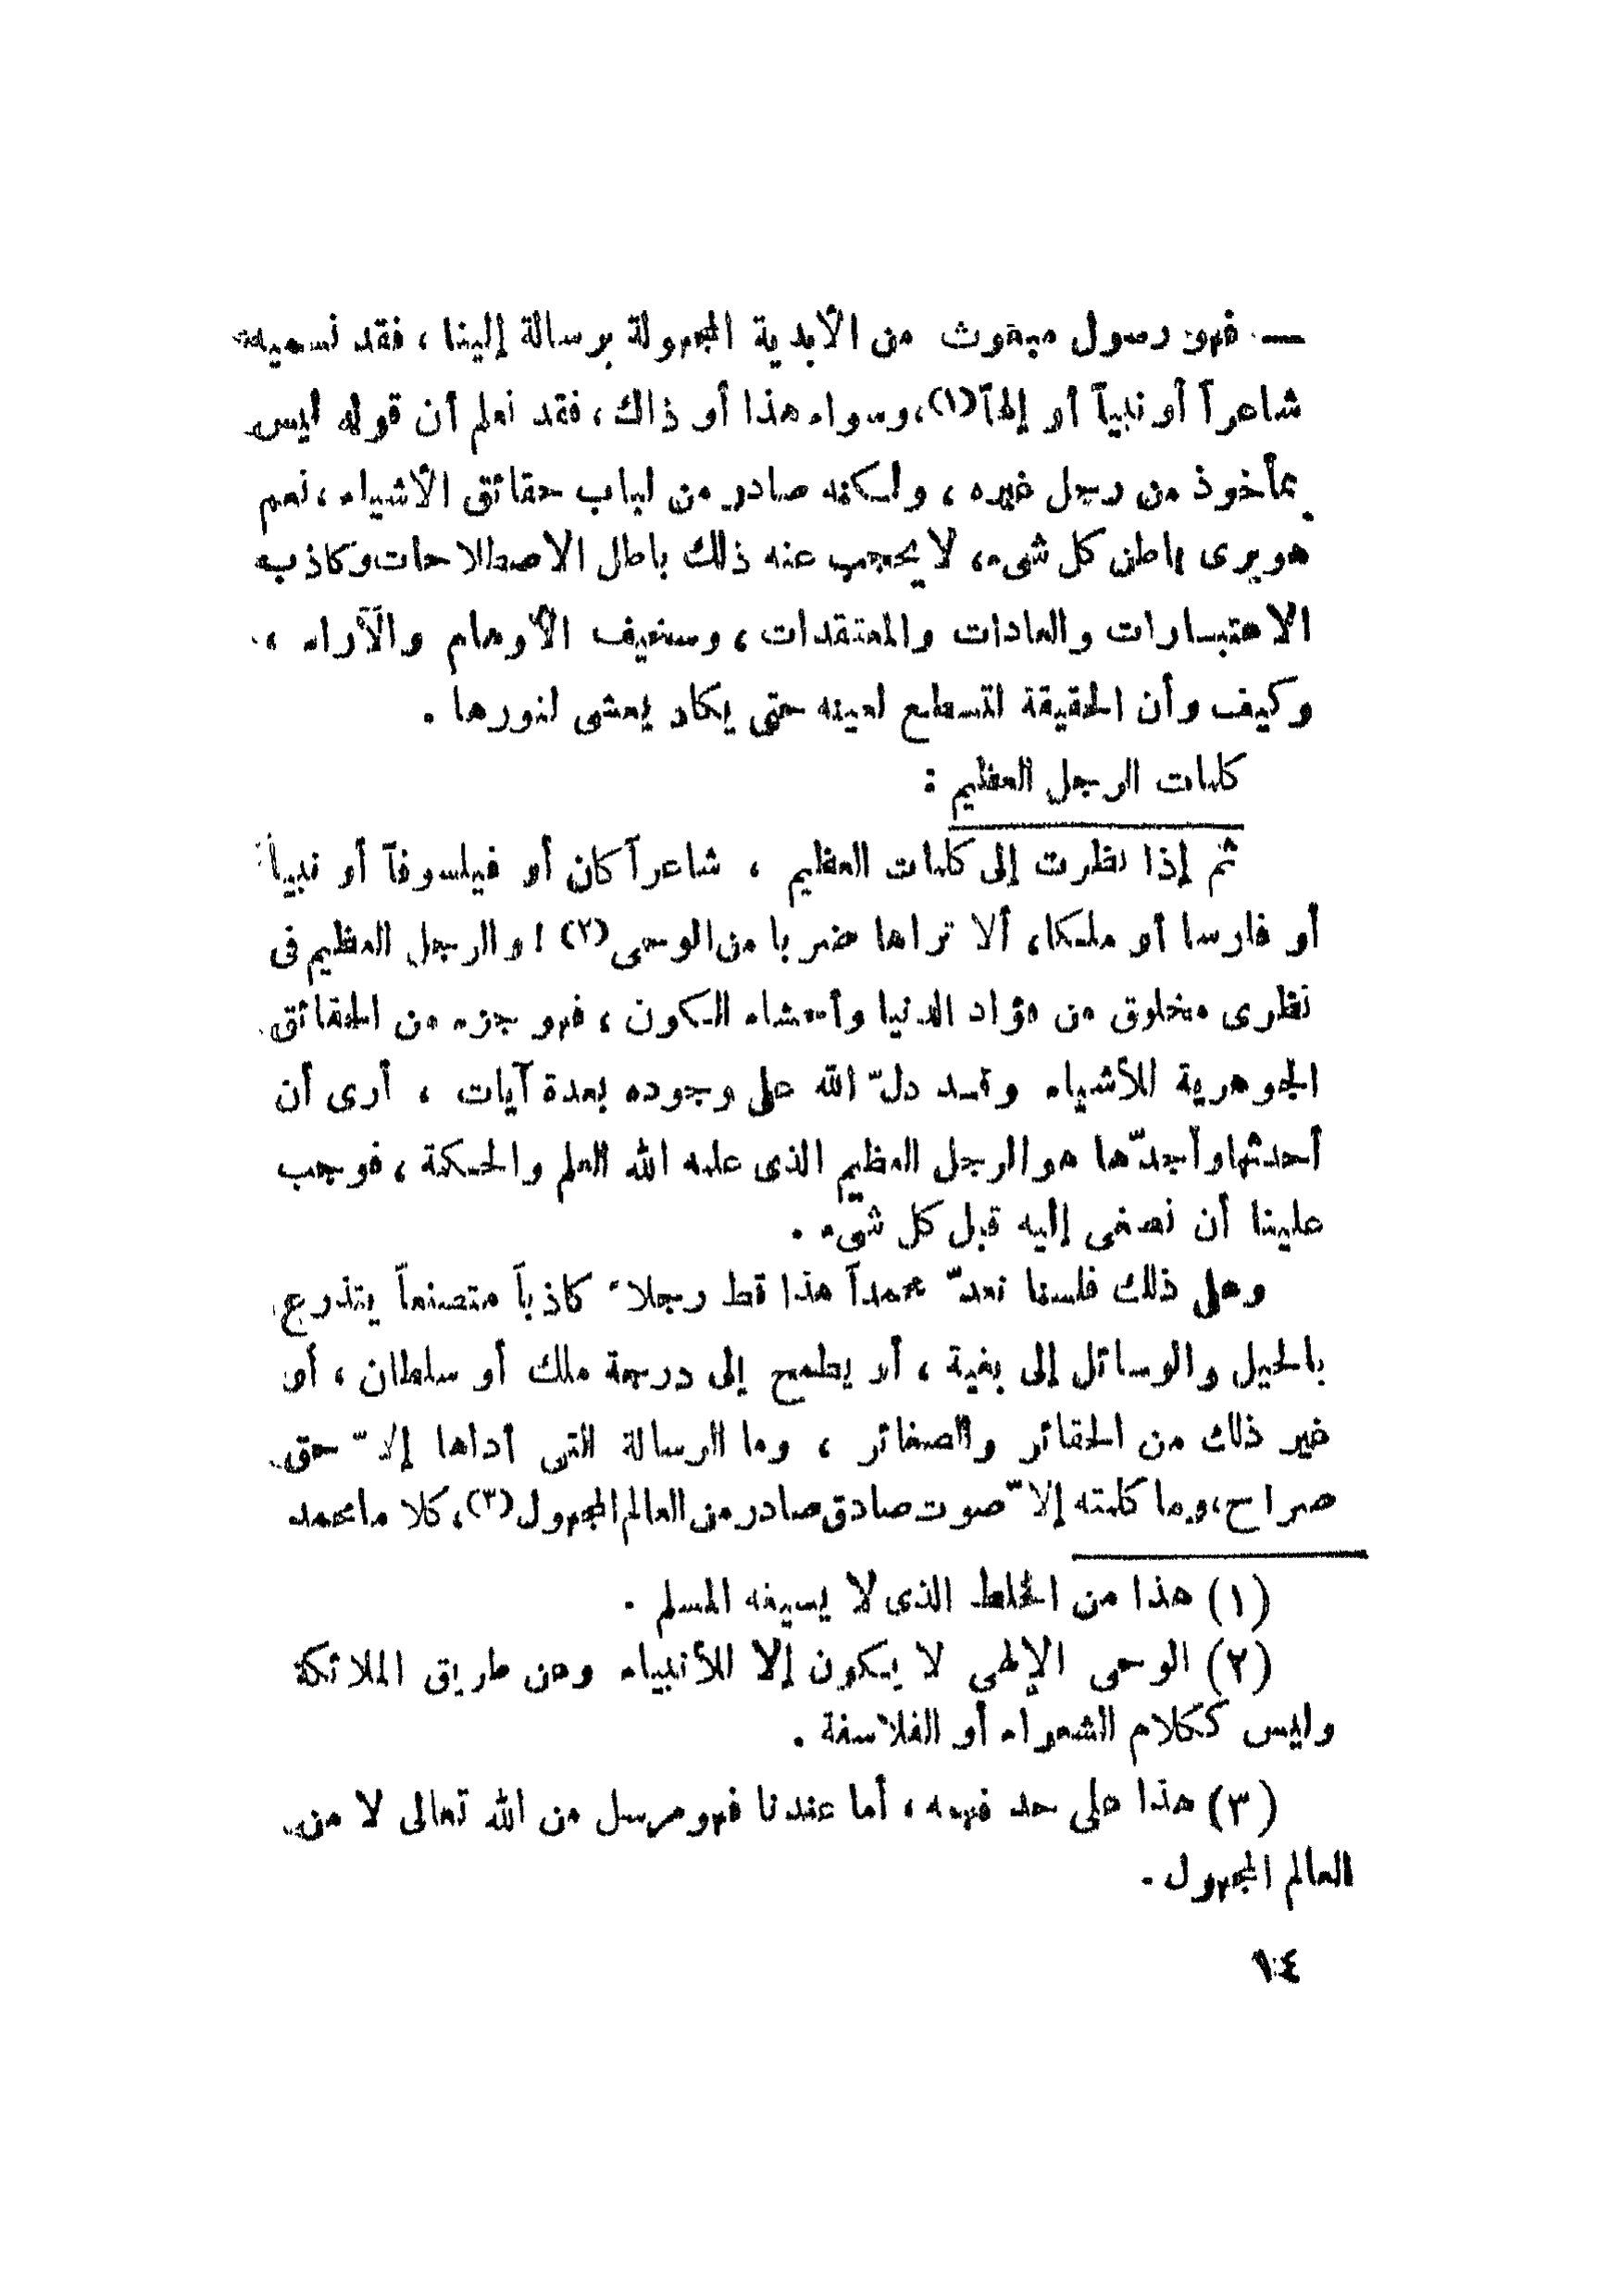 — فهو رسول مبعوث من الأبدية المجهولة برسالة إلينا ، فقد نسميه
شاعراً أو نبياً أو إلهاً (١) ، وسواء هذا أو ذاك ، فقد نعلم أن قوله ليس
بمأخوذ من رجل غيره ، ولكنه صادر من لباب حقائق الأشياء ، نعم
هو يرى باطن كل شيء ، لا يحجب عنه ذلك باطل الاصطلاحات وكاذب
الاعتبارات والعادات والمعتقدات ، وسخيف الأوهام والآراء ،
وكيف وأن الحقيقة لتسطع لعينه حتى يكاد يعشى لنورها .
كلمات الرجل العظيم :
ثم إذا نظرت إلى كلمات العظيم ، شاعراً كان أو فيلسوفاً أو نبياً
أو فارسا أو ملكا ، ألا تراها ضربا من الوحى (٢) ! والرجل العظيم فى
نظرى مخلوق من فؤاد الدنيا وأحشاء الكون ، فهو جزء من الحقائق
الجوهرية للأشياء وقد دلّ الله على وجوده بعدة آيات ، أرى أن
أحدثها وأجدّها هو الرجل العظيم الذى علمه الله العلم والحكمة ، فوجب
علينا أن نصغى إليه قبل كل شيء .
وعلى ذلك فلسنا نعدّ محمداً هذا قط رجلاً كاذباً متصنعاً يتذرع
بالحيل والوسائل إلى بغية ، أو يطمح إلى درجة ملك أو سلطان ، أو
غير ذلك من الحقائر والصغائر ، وما الرسالة التى أداها إلاّ حق
صراح ، وما كلمته إلاّ صوت صادق صادر من العالم المجهول (٣) ، كلا ما محمد
(١) هذا من الخلط الذى لا يسيغه المسلم .
(٢) الوحى الإلهى لا يكون إلا للأنبياء وعن طريق الملائكة
وليس ككلام الشعراء أو الفلاسفة .
(٣) هذا على حد فهمه ، أما عندنا فهو مرسل من الله تعالى لا من
العالم المجهول .
١٤